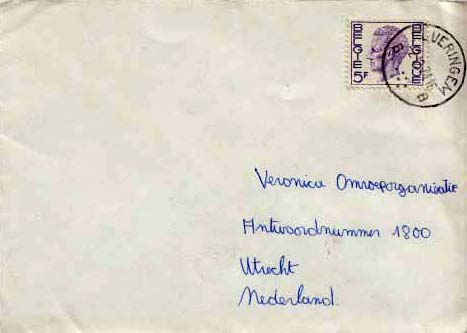 BELGIE 5F
BELGIQUE
EVERINGEM
B
Veronica Omroeporganisatie
Antwoordnummer 1800
Utrecht
Nederland.